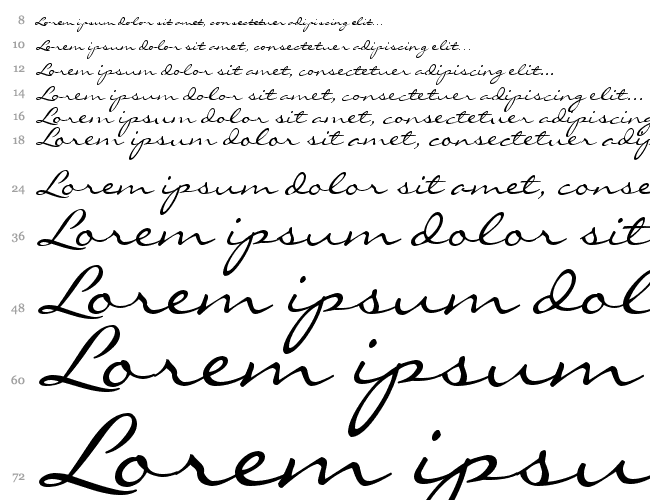 8 Lorem ipsum dolor sit amet, consectetuer adipiscing elit...
10 Lorem ipsum dolor sit amet, consectetuer adipiscing elit...
12 Lorem ipsum dolor sit amet, consectetuer adipiscing elit...
14 Lorem ipsum dolor sit amet, consectetuer adipiscing elit...
16 Lorem ipsum dolor sit amet, consectetuer adipiscing
18 Lorem ipsum dolor sit amet, consectetuer adip
24 Lorem ipsum dolor sit amet, conse
36 Lorem ipsum dolor sit
48 Lorem ipsum dol
60 Lorem ipsum
72 Lorem ipsu